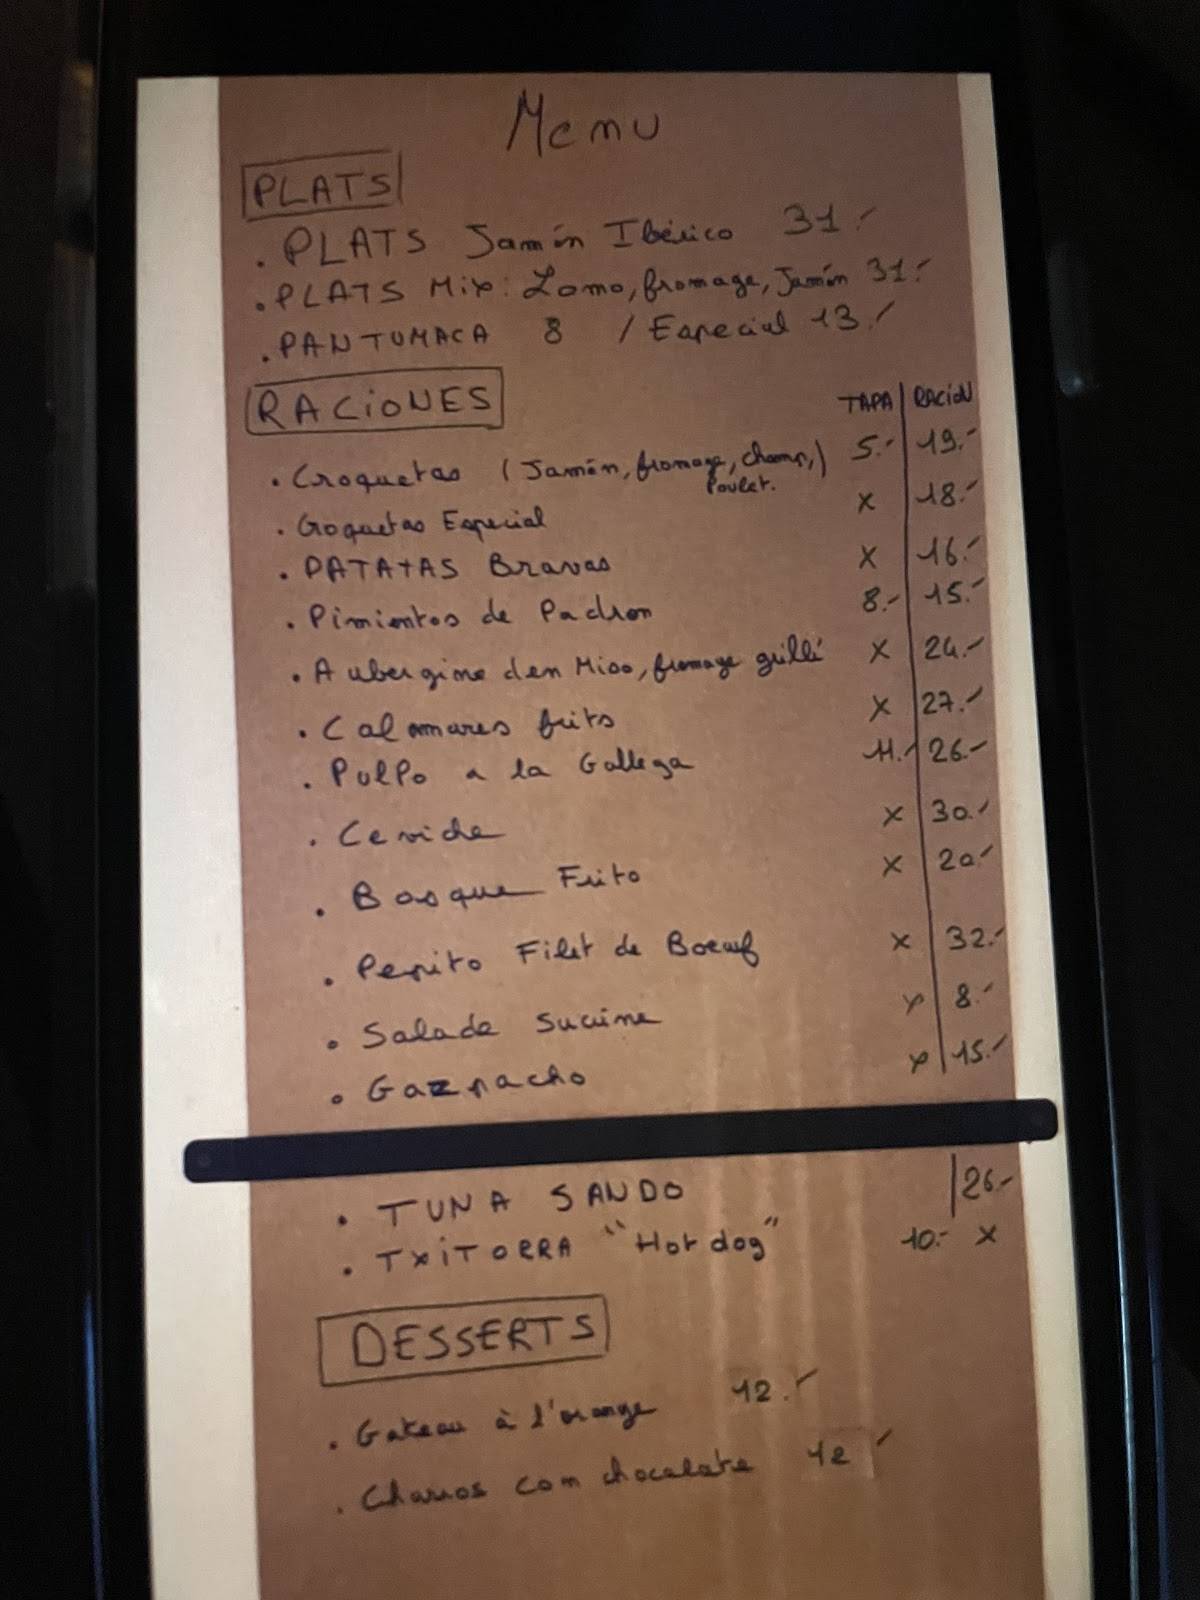 Menu
PLATS
. PLATS Jamón Ibérico 31.-
. PLATS Mix: Lomo, fromage, Jamón 31.-
. PANTUMACA 8 / Especial 13.-
RACIONES TAPA | RACION
. Croquetas (Jamón, fromage, champ,) 5.- | 19.-
Poulet.
. Croquetas Especial x | 18.-
. PATATAS Bravas x | 16.-
. Pimientos de Padron 8.- | 15.-
. Aubergine den Miso, fromage grillé x | 24.-
. Calamares frits x | 27.-
. Pulpo a la Gallega 11.- | 26.-
. Ceviche x | 30.-
. Bosque Frito x | 20.-
. Pepito Filet de Boeuf x | 32.-
. Salade Sucrine x | 8.-
. Gazpacho x | 15.-
. TUNA SANDO | 26.-
. TXITORRA "Hot dog" 10.- x
DESSERTS
. Gateau à l'orange 12.-
. Churros con chocolate 12 -